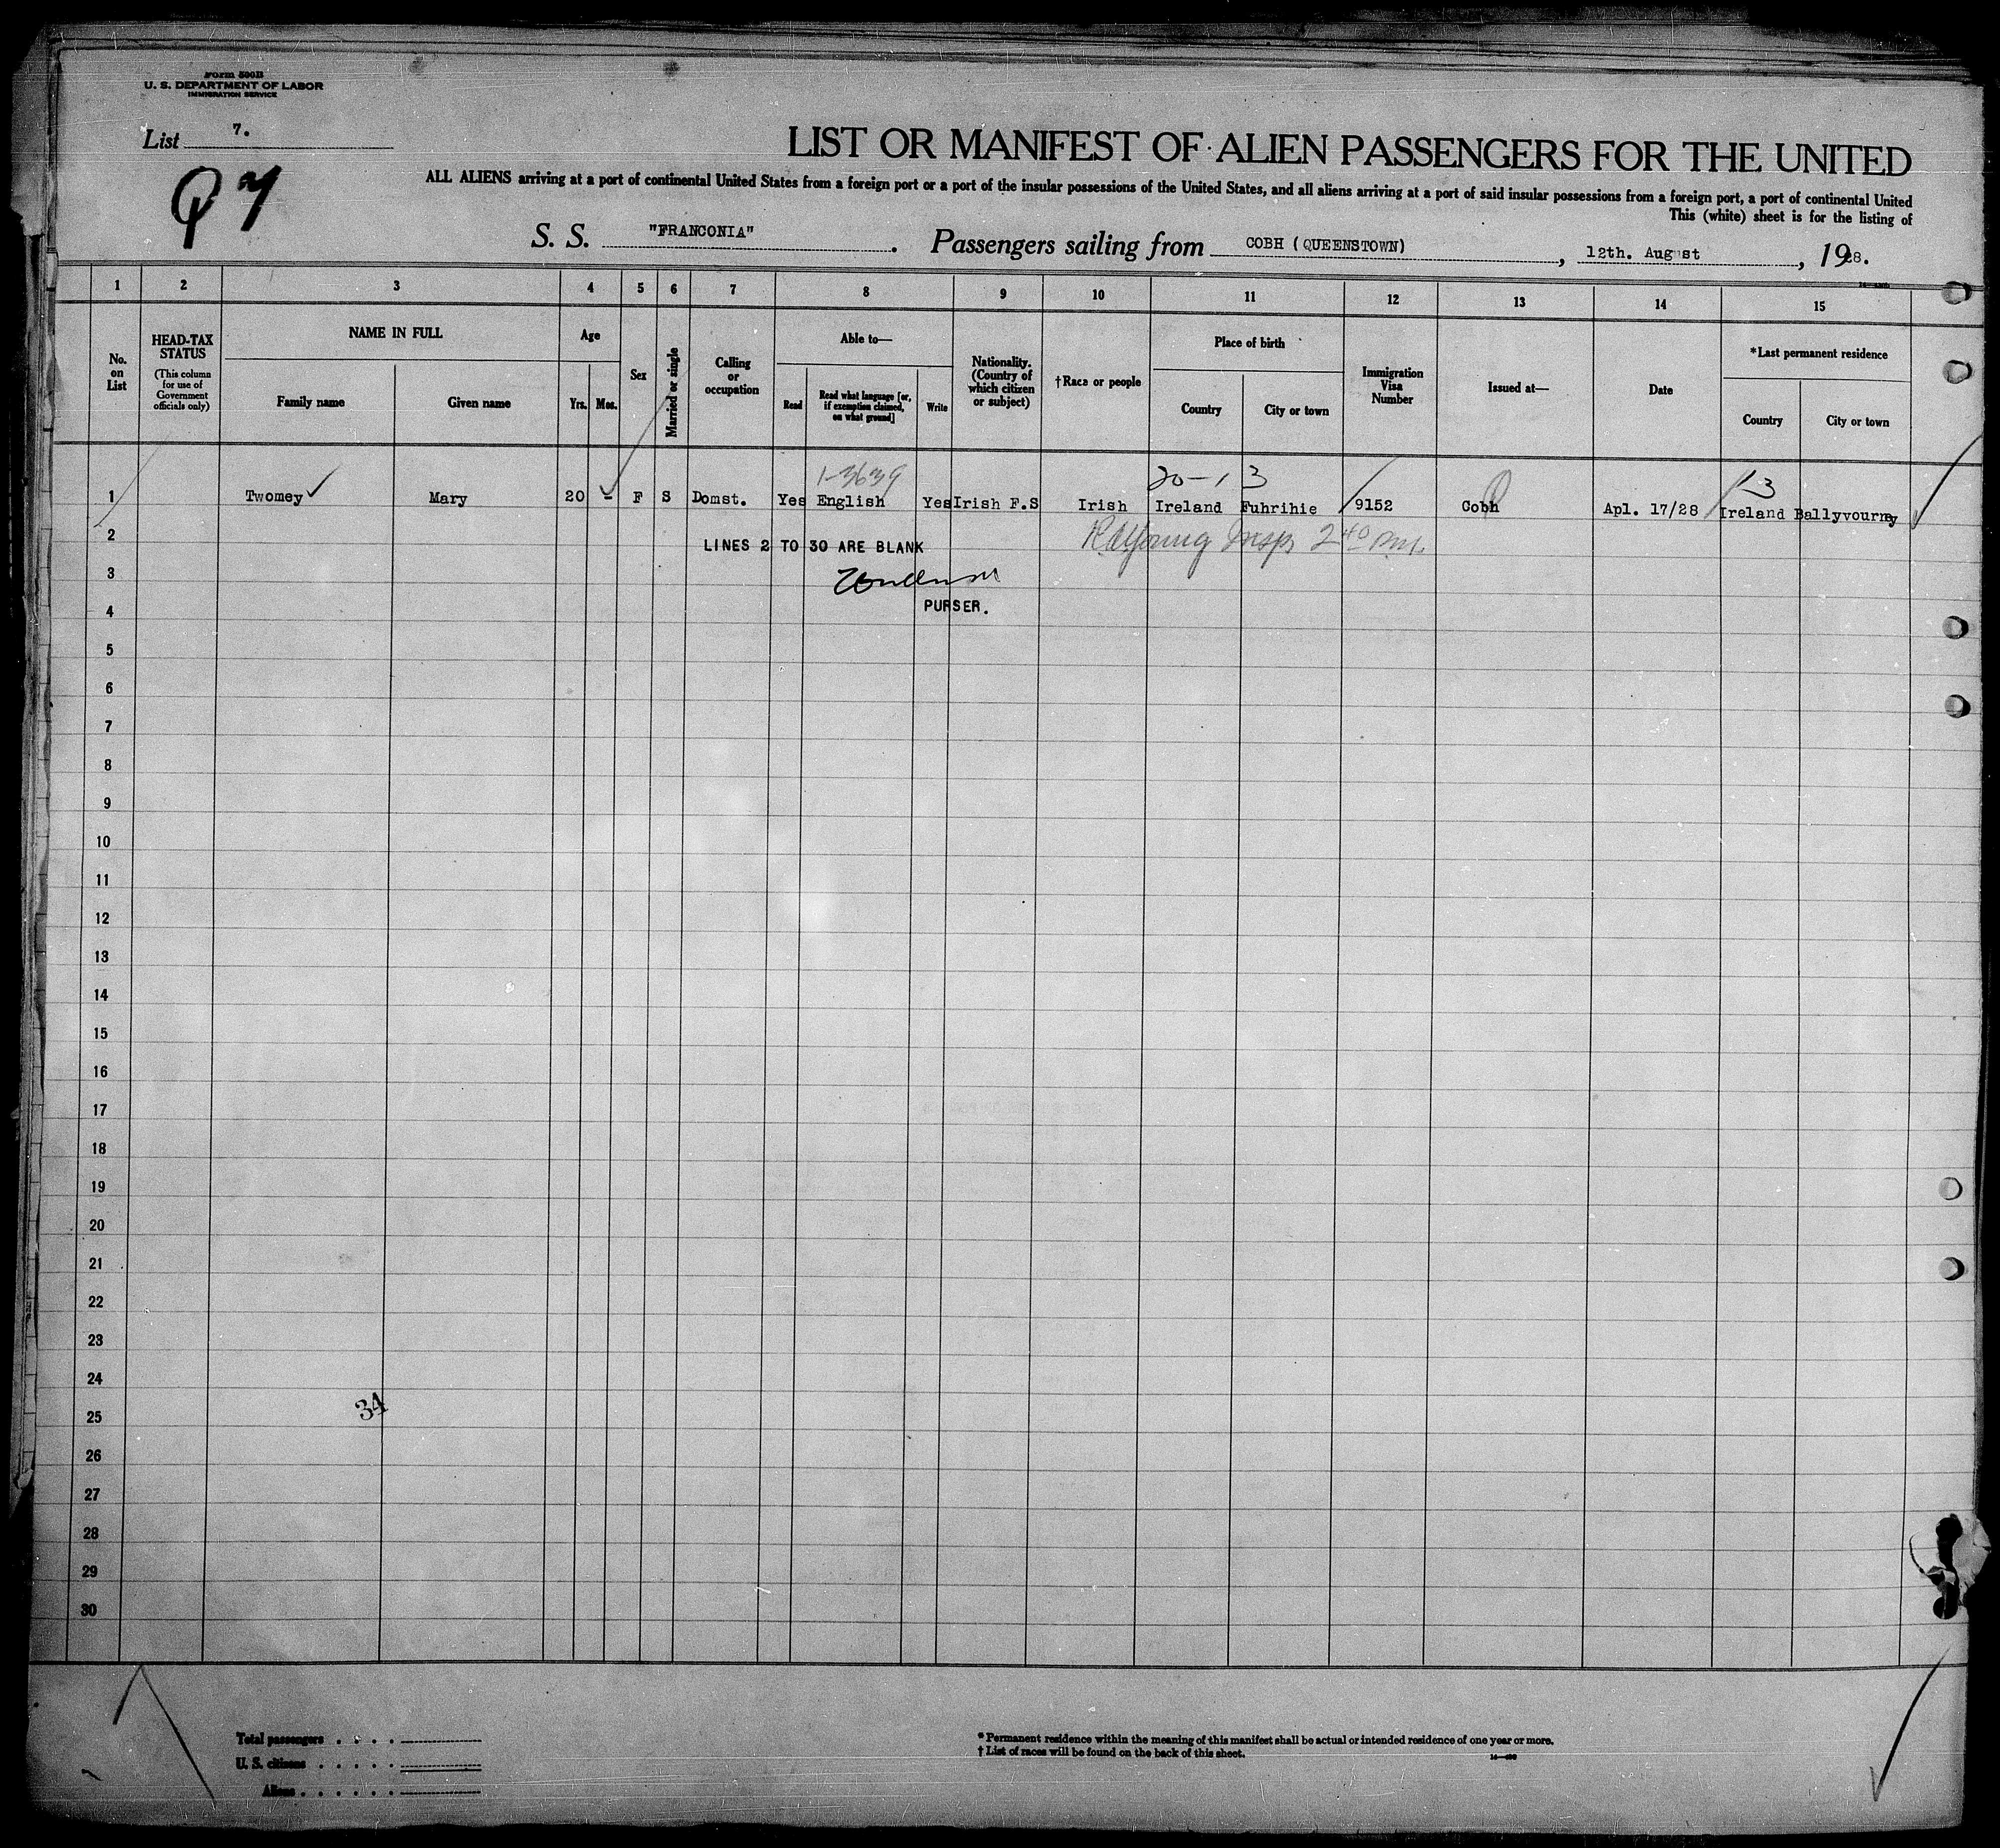 Form 500B
U. S. DEPARTMENT OF LABOR
IMMIGRATION SERVICE
List 7.
LIST OR MANIFEST OF ALIEN PASSENGERS FOR THE UNITED
ALL ALIENS arriving at a port of continental United States from a foreign port or a port of the insular possessions of the United States, and all aliens arriving at a port of said insular possessions from a foreign port, a port of continental United
This (white) sheet is for the listing of
S. S. "FRANCONIA". Passengers sailing from COBH (QUEENSTOWN), 12th. August, 1928.
1 2 3 4 5 6 7 8 9 10 11 12 13 14 15
No. on List
HEAD-TAX STATUS
(This column for use of Government officials only)
NAME IN FULL
Family name
Given name
Age
Yrs. Mos.
Sex
Married or single
Calling or occupation
Able to—
Read
Read what language [or, if exemption claimed, on what ground]
Write
Nationality. (Country of which citizen or subject)
†Race or people
Place of birth
Country
City or town
Immigration Visa Number
Issued at—
Date
*Last permanent residence
Country
City or town
1-3639 20-1 3 1-3
1 Twomey Mary 20 - F S Domst. Yes English Yes Irish F.S Irish Ireland Fuhrihie 9152 Cobh Apl. 17/28 Ireland Ballyvourney
2 LINES 2 TO 30 ARE BLANK Young Insp 2 40 P.M.
3
4 PURSER.
5
6
7
8
9
10
11
12
13
14
15
16
17
18
19
20
21
22
23
24
34
25
26
27
28
29
30
Total passengers . . . .
U. S. citizens . . . . .
Aliens . . . . . .
* Permanent residence within the meaning of this manifest shall be actual or intended residence of one year or more.
† List of races will be found on the back of this sheet.